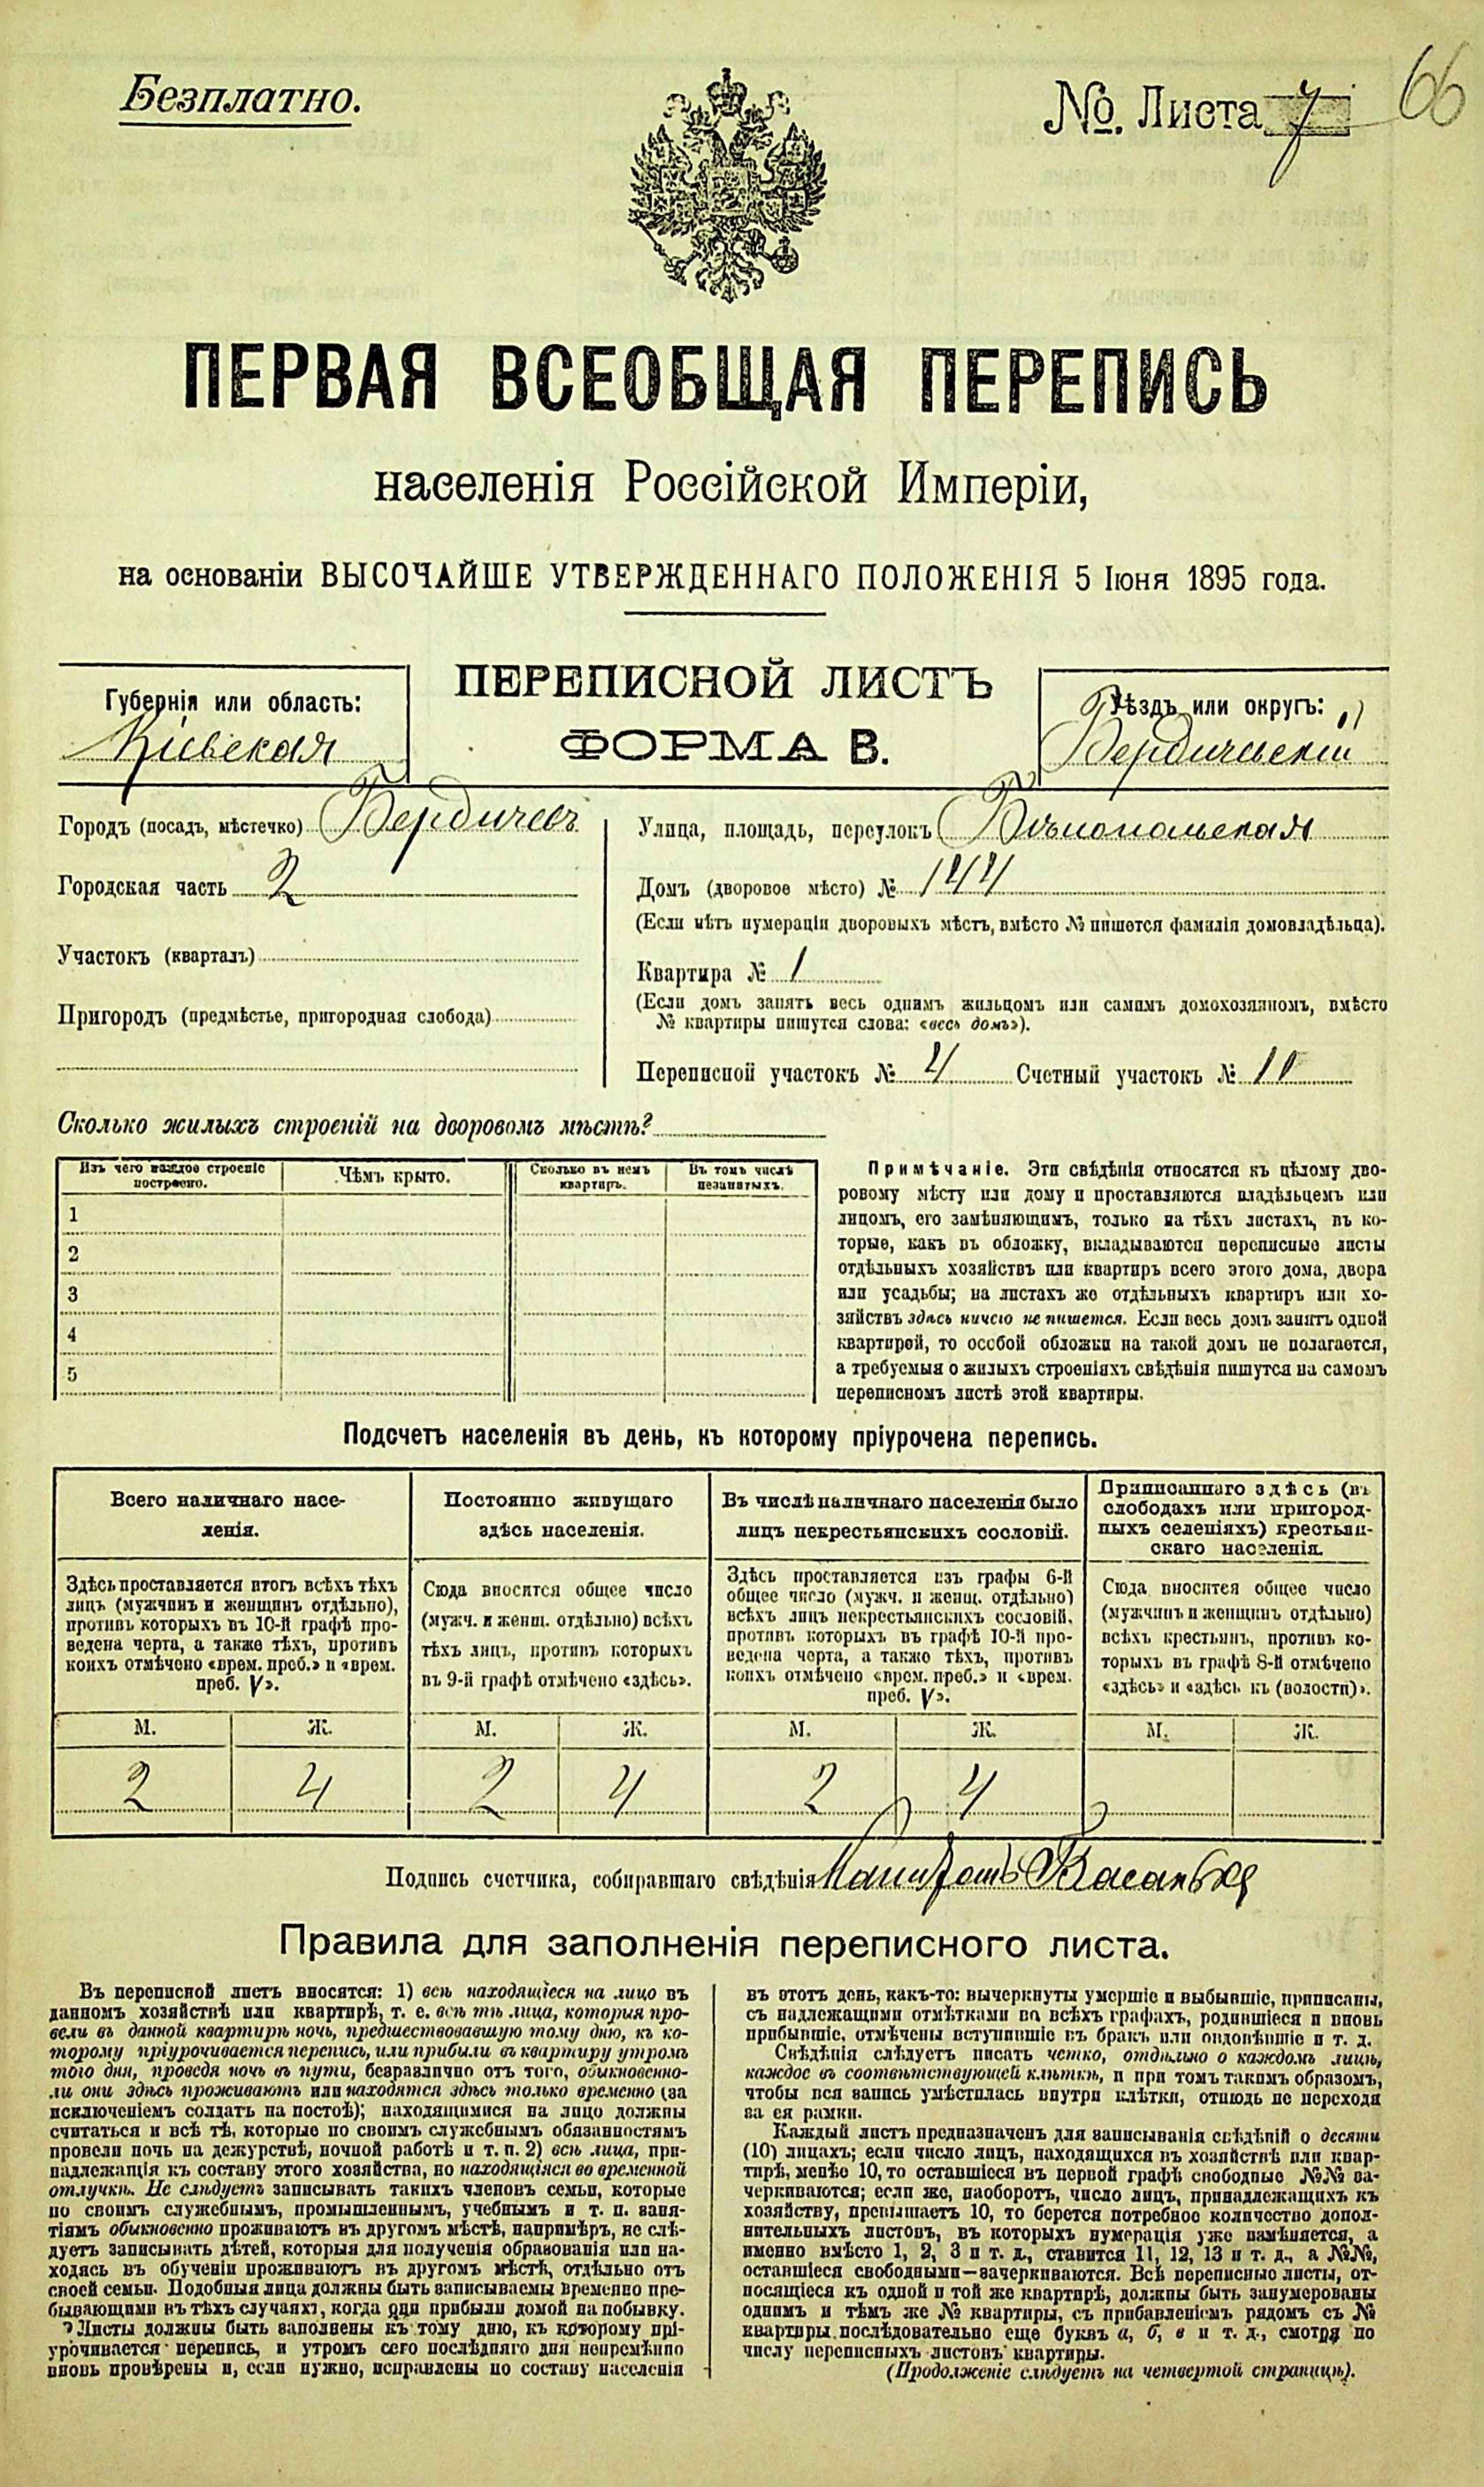 Безплатно.
№. Листа 7
66
ПЕРВАЯ ВСЕОБЩАЯ ПЕРЕПИСЬ
населенія Россійской Имперіи,
на основаніи ВЫСОЧАЙШЕ УТВЕРЖДЕННАГО ПОЛОЖЕНІЯ 5 Іюня 1895 года.
Губернія или область:
Кіевская
ПЕРЕПИСНОЙ ЛИСТЪ
ФОРМА В.
Уѣздъ или округъ:
Бердичевскій
Городъ (посадъ, мѣстечко) Бердичевъ
Городская часть 2
Участокъ (кварталъ)
Пригородъ (предмѣстье, пригородная слобода)
Улица, площадь, переулокъ Бѣлопольская
Домъ (дворовое мѣсто) № 144
(Если нѣтъ нумераціи дворовыхъ мѣстъ, вмѣсто № пишется фамилія домовладѣльца).
Квартира № 1
(Если домъ занятъ весь однимъ жильцомъ или самимъ домохозяиномъ, вмѣсто
№ квартиры пишутся слова: «весь домъ»).
Переписной участокъ № 4 Счетный участокъ № 11
Сколько жилыхъ строеній на дворовомъ мѣстѣ?
Изъ чего каждое строеніе
построено.
Чѣмъ крыто.
Сколько въ немъ
квартиръ.
Въ томъ числѣ
незанятыхъ.
1
2
3
4
5
Примѣчаніе. Эти свѣдѣнія относятся къ цѣлому дво-
ровому мѣсту или дому и проставляются владѣльцемъ или
лицомъ, его замѣняющимъ, только на тѣхъ листахъ, въ ко-
торые, какъ въ обложку, вкладываются переписные листы
отдѣльныхъ хозяйствъ или квартиръ всего этого дома, двора
или усадьбы; на листахъ же отдѣльныхъ квартиръ или хо-
зяйствъ здѣсь ничего не пишется. Если весь домъ занятъ одной
квартирой, то особой обложки на такой домъ не полагается,
а требуемыя о жилыхъ строеніяхъ свѣдѣнія пишутся на самомъ
переписномъ листѣ этой квартиры.
Подсчетъ населенія въ день, къ которому пріурочена перепись.
Всего наличнаго насе-
ленія.
Здѣсь проставляется итогъ всѣхъ тѣхъ
лицъ (мужчинъ и женщинъ отдѣльно),
противъ которыхъ въ 10-й графѣ про-
ведена черта, а также тѣхъ, противъ
коихъ отмѣчено «врем. преб.» и «врем.
преб. V».
Постоянно живущаго
здѣсь населенія.
Сюда вносится общее число
(мужч. и женщ. отдѣльно) всѣхъ
тѣхъ лицъ, противъ которыхъ
въ 9-й графѣ отмѣчено «здѣсь».
Въ числѣ наличнаго населенія было
лицъ некрестьянскихъ сословій.
Здѣсь проставляется изъ графы 6-й
общее число (мужч. и женщ. отдѣльно)
всѣхъ лицъ некрестьянскихъ сословій,
противъ которыхъ въ графѣ 10-й про-
ведена черта, а также тѣхъ, противъ
коихъ отмѣчено «врем. преб.» и «врем.
преб. V».
Приписаннаго здѣсь (въ
слободахъ или пригород-
ныхъ селеніяхъ) крестьян-
скаго населенія.
Сюда вносится общее число
(мужчинъ и женщинъ отдѣльно)
всѣхъ крестьянъ, противъ ко-
торыхъ въ графѣ 8-й отмѣчено
«здѣсь» и «здѣсь къ (волости)».
М. Ж. М. Ж. М. Ж. М. Ж.
2 4 2 4 2 4
Подпись счетчика, собиравшаго свѣдѣнія
Правила для заполненія переписного листа.
Въ переписной листъ вносятся: 1) всѣ находящіеся на лицо въ
данномъ хозяйствѣ или квартирѣ, т. е. всѣ тѣ лица, которыя про-
вели въ данной квартирѣ ночь, предшествовавшую тому дню, къ ко-
торому пріурочивается перепись, или прибыли въ квартиру утромъ
того дня, проведя ночь въ пути, безразлично отъ того, обыкновенно-
ли они здѣсь проживаютъ или находятся здѣсь только временно (за
исключеніемъ солдатъ на постоѣ); находящимися на лицо должны
считаться и всѣ тѣ, которые по своимъ служебнымъ обязанностямъ
провели ночь на дежурствѣ, ночной работѣ и т. п. 2) всѣ лица, при-
надлежащія къ составу этого хозяйства, но находящіяся во временной
отлучкѣ. Не слѣдуетъ записывать такихъ членовъ семьи, которые
по своимъ служебнымъ, промышленнымъ, учебнымъ и т. п. заня-
тіямъ обыкновенно проживаютъ въ другомъ мѣстѣ, напримѣръ, не слѣ-
дуетъ записывать дѣтей, которыя для полученія образованія или на-
ходясь въ обученіи проживаютъ въ другомъ мѣстѣ, отдѣльно отъ
своей семьи. Подобныя лица должны быть записываемы временно пре-
бывающими въ тѣхъ случаяхъ, когда они прибыли домой на побывку.
Листы должны быть заполнены къ тому дню, къ которому прі-
урочивается перепись, и утромъ сего послѣдняго дня непремѣнно
вновь провѣрены и, если нужно, исправлены по составу населенія
въ этотъ день, какъ-то: вычеркнуты умершіе и выбывшіе, приписаны,
съ надлежащими отмѣтками во всѣхъ графахъ, родившіеся и вновь
прибывшіе, отмѣчены вступившіе въ бракъ или овдовѣвшіе и т. д.
Свѣдѣнія слѣдуетъ писать четко, отдѣльно о каждомъ лицѣ,
каждое въ соотвѣтствующей клѣткѣ, и при томъ такимъ образомъ,
чтобы вся запись умѣстилась внутри клѣтки, отнюдь не переходя
за ея рамки.
Каждый листъ предназначенъ для записыванія свѣдѣній о десяти
(10) лицахъ; если число лицъ, находящихся въ хозяйствѣ или квар-
тирѣ, менѣе 10, то оставшіеся въ первой графѣ свободные №№ за-
черкиваются; если же, наоборотъ, число лицъ, принадлежащихъ къ
хозяйству, превышаетъ 10, то берется потребное количество допол-
нительныхъ листовъ, въ которыхъ нумерація уже измѣняется, а
именно вмѣсто 1, 2, 3 и т. д., ставится 11, 12, 13 и т. д., а №№,
оставшіеся свободными—зачеркиваются. Всѣ переписные листы, от-
носящіеся къ одной и той же квартирѣ, должны быть занумерованы
однимъ и тѣмъ же № квартиры, съ прибавленіемъ рядомъ съ №
квартиры послѣдовательно еще буквъ а, б, в и т. д., смотря по
числу переписныхъ листовъ квартиры.
(Продолженіе слѣдуетъ на четвертой страницѣ).